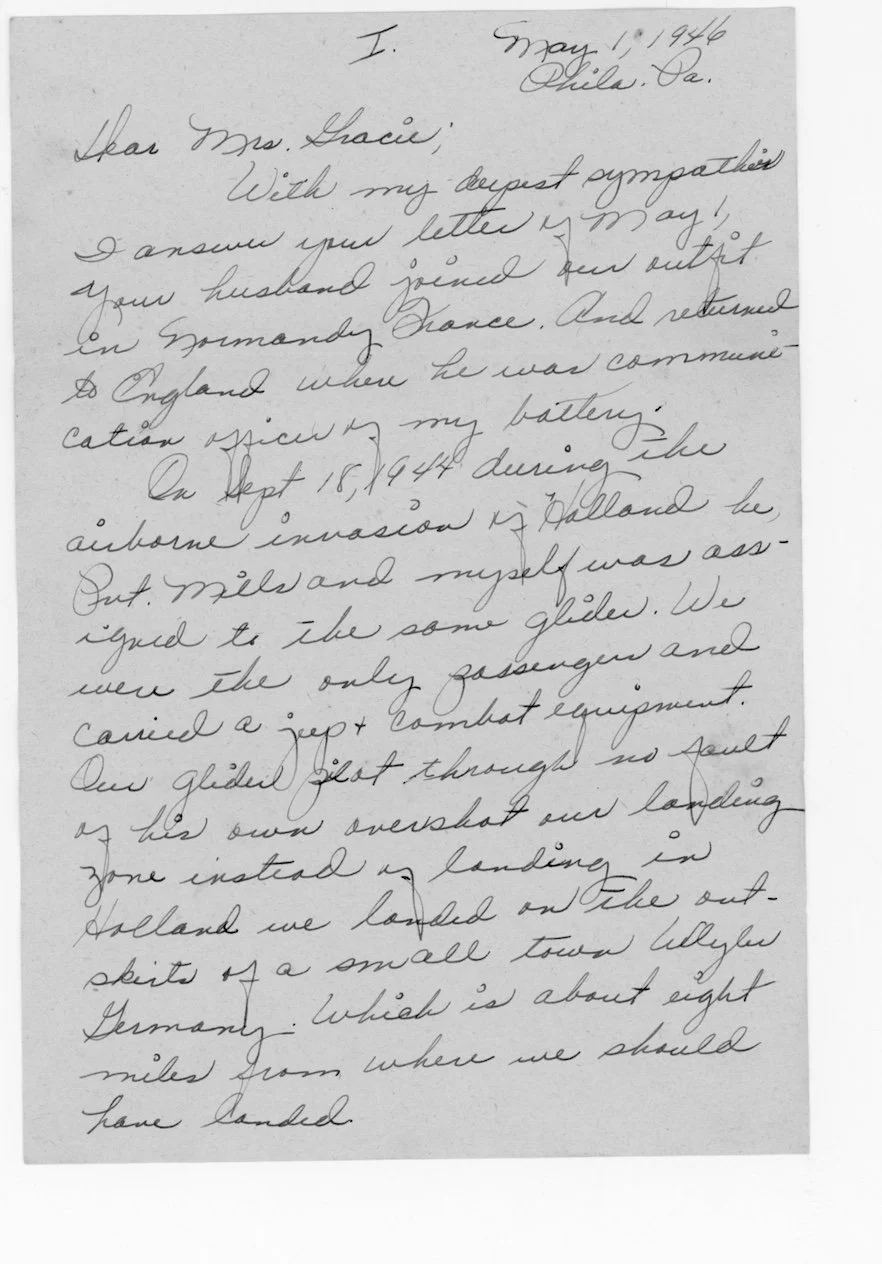 I.
May 1, 1946
Phila. Pa.
Dear Mrs. Gracie;
With my deepest sympathies
I answer your letter of May 1,
Your husband joined our outfit
in Normandy France. And returned
to England where he was communi-
cation officer of my battery.
On Sept 18, 1944 during the
airborne invasion of Holland he,
Pvt. Mills and myself was ass-
igned to the same glider. We
were the only passengers and
carried a jeep + combat equipment.
Our glider pilot through no fault
of his own overshot our landing
zone instead of landing in
Holland we landed on the out-
skirts of a small town Wyler
Germany. Which is about eight
miles from where we should
have landed.